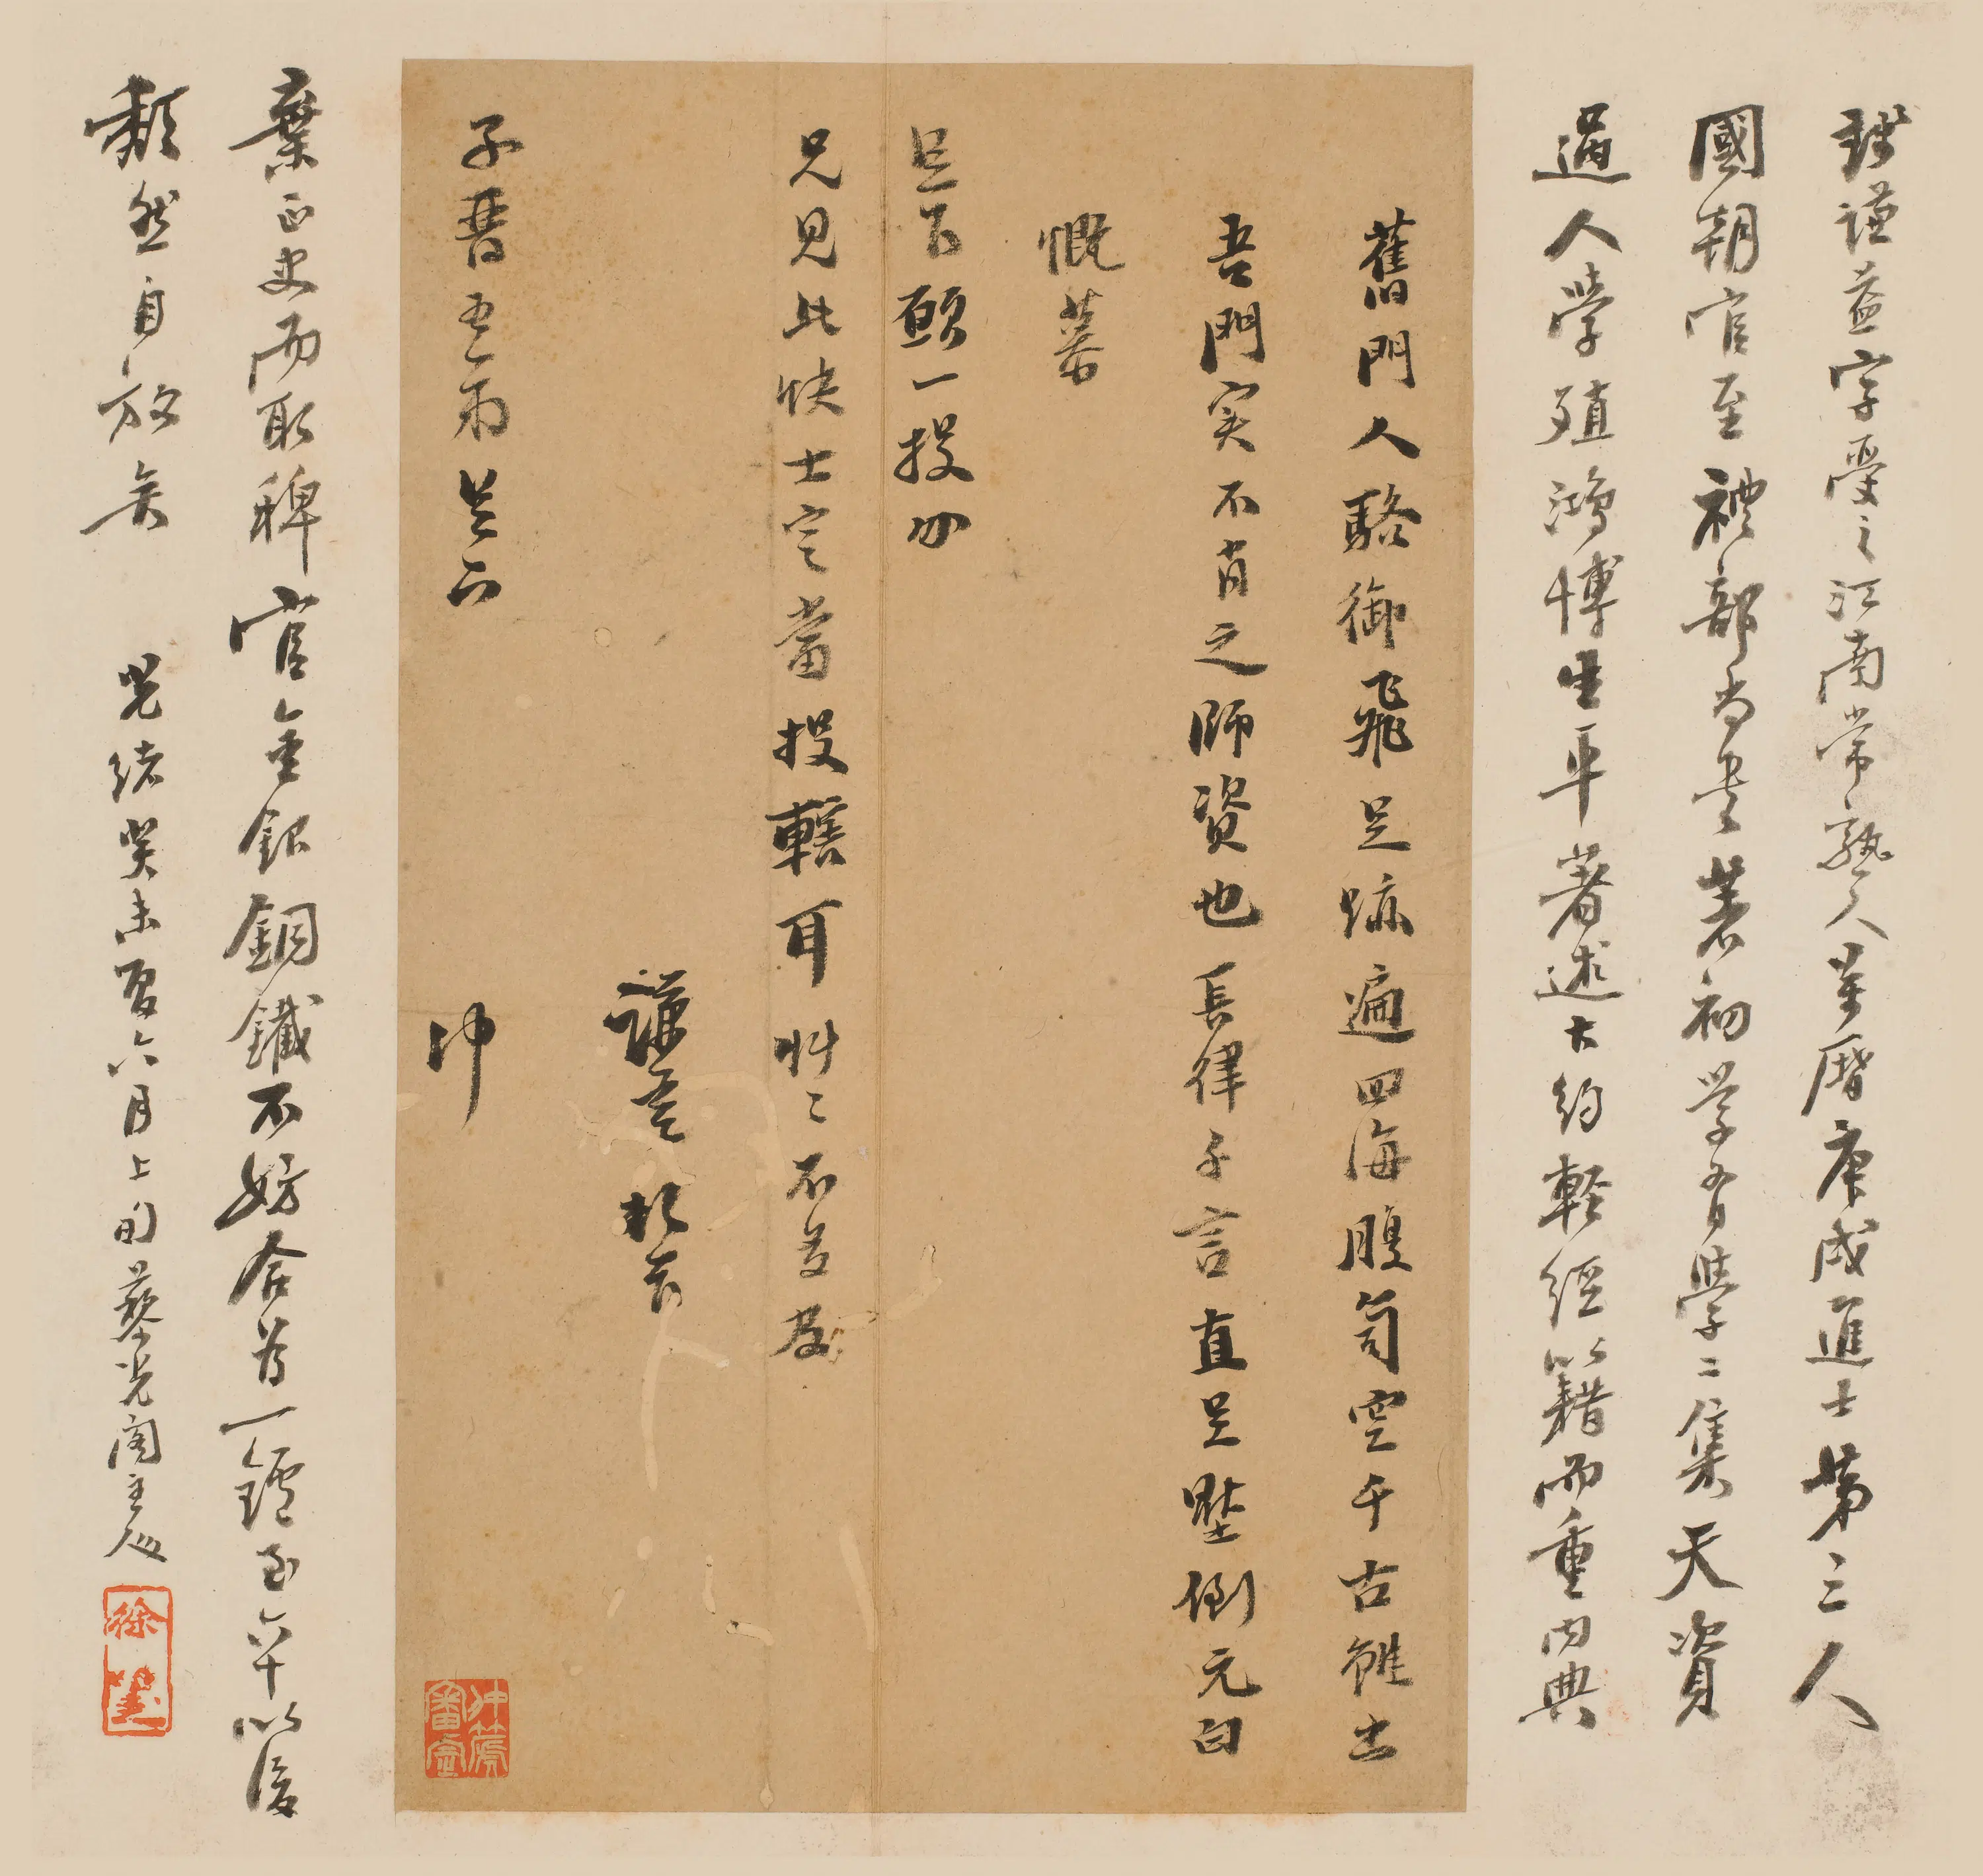 錢謙益字受之江南常熟人萬曆庚戌進士第三人
國朝官至禮部尚書著初學有學二集天資
過人學殖鴻博生平著述大約輕經籍而重內典
舊門人駱御飛足跡遍四海腹笥空千古雖出
吾門實不肖之師資也長律千言直足壓倒元白
慨慕
足下願一投分
兄見此快士定當投轄耳草〻不多及
謙益頓首
子晉吾弟足下
沖
棄正史而取稗官金銀銅鐵不妨合為一爐至六十以後
頹然自放矣
光緒癸未夏六月上旬藜光閣主人